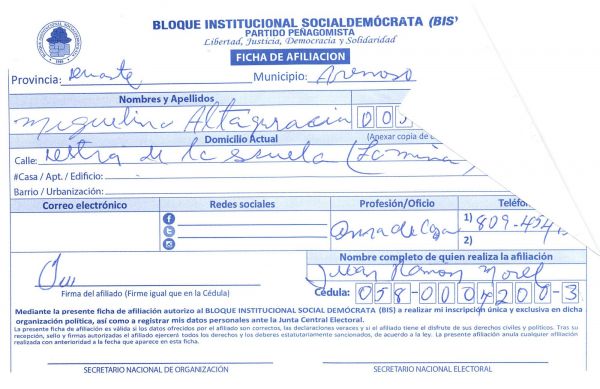 BLOQUE INSTITUCIONAL SOCIALDEMÓCRATA (BIS
PARTIDO PEÑAGOMISTA
Libertad, Justicia, Democracia y Solidaridad
FICHA DE AFILIACION
Provincia: Duarte Municipio: Arenoso
Nombres y Apellidos
Miguelina Altagracia 00
Domicilio Actual (Anexar copia de
Calle: detra de la escuela (La mina
#Casa / Apt. / Edificio:
Barrio / Urbanización:
Correo electrónico Redes sociales Profesión/Oficio Teléfon
Ama de Casa 1) 809-454
2)
Nombre completo de quien realiza la afiliación
Juan Ramon Morel
Firma del afiliado (Firme igual que en la Cédula) Cédula: 058-0004200-3
Mediante la presente ficha de afiliación autorizo al BLOQUE INSTITUCIONAL SOCIAL DEMÓCRATA (BIS) a realizar mi inscripción única y exclusiva en dicha
organización política, así como a registrar mis datos personales ante la Junta Central Electoral.
La presente ficha de afiliación es válida si los datos ofrecidos por el afiliado son correctos, las declaraciones veraces y si el afiliado tiene el disfrute de sus derechos civiles y políticos. Tras su
recepción, sello y firmas autorizadas el afiliado ejercerá todos los derechos y los deberes estatutariamente sancionados, de acuerdo a la ley. La presente afiliación anula cualquier afiliación
realizada con anterioridad a la fecha que aparece en esta ficha.
SECRETARIO NACIONAL DE ORGANIZACIÓN SECRETARIO NACIONAL ELECTORAL